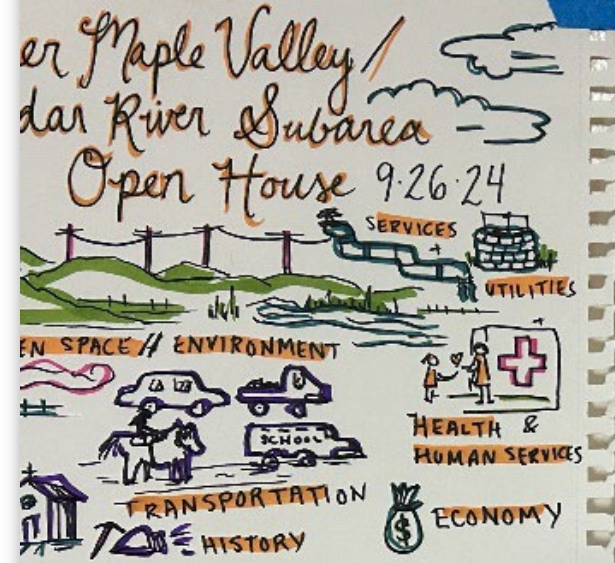 er Maple Valley /
dar River Subarea
Open House 9.26.24
SERVICES +
UTILITIES
EN SPACE // ENVIRONMENT
SCHOOL
HEALTH &
HUMAN SERVICES
TRANSPORTATION
$ ECONOMY
HISTORY